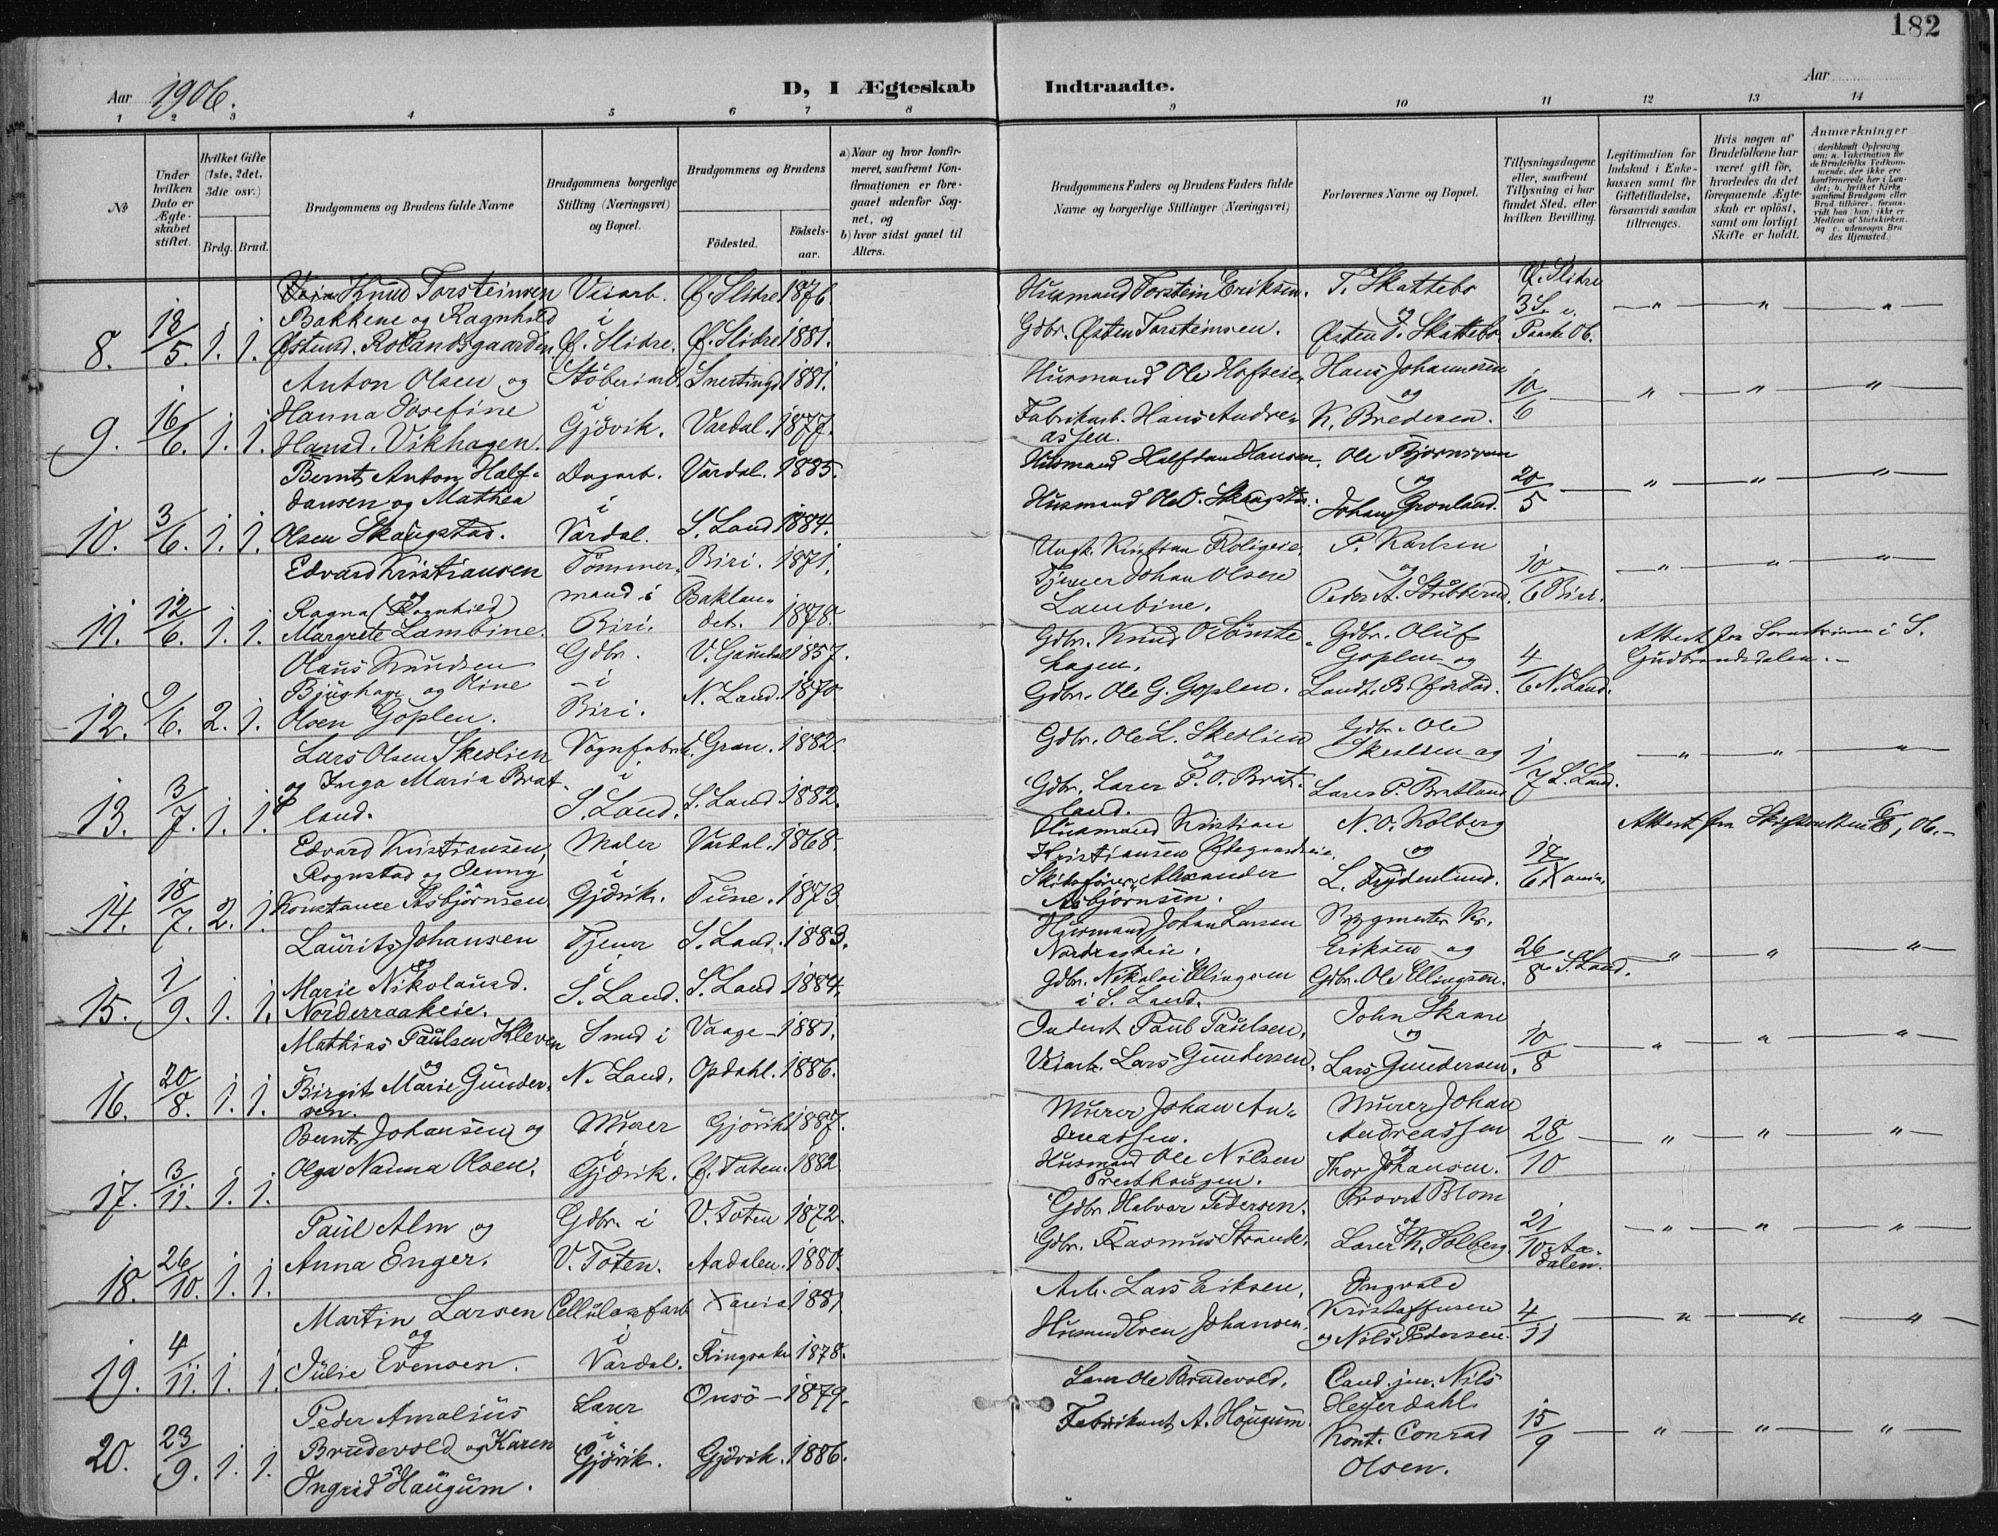 182
Aar 1906.
D, I Ægteskab Indtraadte.
Aar
1 2 3 4 5 6 7 8 9 10 11 12 13 14
№
Under hvilken Dato er Ægteskabet stiftet.
Hvilket Gifte (1ste, 2det, 3die osv.)
Brdg. Brud.
Brudgommens og Brudens fulde Navne
Brudgommens borgerlige Stilling (Næringsvei) og Bopæl.
Brudgommens og Brudens
Fødested. Fødselsaar.
a) Naar og hvor konfirmeret, saafremt Konfirmationen er foregaaet udenfor Sognet, og
b) hvor sidst gaaet til Alters.
Brudgommens Faders og Brudens Faders fulde Navne og borgerlige Stillinger (Næringsvei)
Forlovernes Navne og Bopæl.
Tillysningsdagene eller, saafremt Tillysning ei har fundet Sted, efter hvilken Bevilling.
Legitimation for Indskud i Enkekassen samt for Giftetilladelse, forsaavidt saadan tiltrænges.
Hvis nogen af Brudefolkene har været gift før, hvorledes da det foregaaende Ægteskab er opløst, samt om lovligt Skifte er holdt.
Anmærkninger
8. 18/5. 1. 1. Knud Torsteinsen Veiarb. Ø. Slidre 1876. Husmand Torstein Eriksen. T. Skattebo Ø. Slidre
Bakkene og Ragnhild i 3 S. e.
Østensd. Rolandsgaarden Ø. Slidre. Ø. Slidre 1881. Gdbr. Østen Torsteinsen. Østen T. Skattebo. Paaske 06.
9. 16/6. 1. 1. Anton Olsen og Støberiarb. Snertingd. 1881. Husmand Ole Hofseie. Hans Johannesen 10/6
Hanna Josefine i og
Hansd. Vikhagen. Gjøvik. Vardal. 1877. Fabrikarb. Hans Andreassen. K. Bredesen.
10. 3/6. 1. 1. Bernt Anton Halfdansen og Mathea Dagarb. Vardal. 1885. Husmand Halfdan Hansen. Ole Bjørnsveen 20/5
Olsen Skaugstad. i Vardal. S. Land 1884. Husmand Ole O. Skaugstad. og Johan Grønland.
11. 12/6. 1. 1. Edvard Kristiansen Tømmermand i Biri. 1871. P. Karlsen 10/6 Biri.
og Ragna (Ragnhild)
Margrete Lambine. Biri. Baklandet. 1878. Tjener Johan Olsen Lambine. og Peder A.
12. 9/6. 2. 1. Olaus Knudsen Gdbr. V. Gausdal 1857. Gdbr. Knud O. hagen. Gdbr. Oluf Goplen og 4/6 N. Land. Attest fra Sorenskriveren i S. Gudbrandsdalen.
Bjughage og Oline i
Olsen Goplen. Biri. N. Land. 1870 Gdbr. Ole G. Goplen.
13. 3/7. 1. 1. Lars Olsen Skeslien Vognfabrik. Gran. 1882. Gdbr. Ole L. Skeslien Gdbr. Ole Skeslien og 1/7 S. Land.
og Inga Maria Bratland. i S. Land. S. Land. 1882. og Gdbr. Lærer P. O. Bratland. Lærer P. Bratland
14. 18/7. 2. 1. Edvard Kristiansen, Maler Vardal. 1868. Husmand Kristian Kristiansen Ødegaardseie. N. O. Kolberg 17/6 Xania. Attest fra Skifteretten
Rognstad og Jenny i og
Konstance Asbjørnsen. Gjøvik. Tune. 1873. Alexander Asbjørnsen. L. Frydenlund.
15. 1/9. 1. 1. Laurits Johansen Tjener S. Land. 1883. Husmand Johan Larsen Bygmester Kr. Eriksen og 26/8 S. Land.
og i
Marie Nikolausd. S. Land. S. Land 1884. Gdbr. Nikolai Ellingsen i S. Land. Gdbr. Ole Ellingsen.
Norderraakeie.
16. 20/8. 1. 1. Mathias Paulsen Kleven Smed i Vaage 1881. Inderst Paul Paulsen. John Skaare 10/8
og og
Birgit Marie Gundersen. N. Land. Opdahl. 1886. Veiarb. Lars Gundersen. Lars Gundersen.
17. 3/11. 1. 1. Bernt Johansen og Murer Gjøvik 1887. Murer Johan Andreassen. Murer Johan Andreassen 28/10
Olga Nanna Olsen. i Gjøvik. Ø. Toten 1882 Husmand Ole Nilsen Presthaugen. og Thor Johansen.
18. 26/10. 1. 1. Paul Alm og Gdbr. i V. Toten 1872. Gdbr. Halvor Pedersen. Provst Blom 21/10 Aadalen.
Anna Enger. V. Toten. Aadalen. 1880. Gdbr. Rasmus Strande. og Lærer N. Solberg.
19. 4/11. 1. 1. Martin Larsen Cellulosefarb. Xania 1881. Arb. Lars Eriksen. Ingvald Kristoffersen 4/11
og i
Julie Evensen. Vardal. Ringsaker 1878. Husmd. Even Johansen. og Nils Pedersen.
20. 23/9. 1. 1. Peder Amalius Lærer Onsø 1879. Lærer Ole Brudevold. Cand. jur. Nils Heyerdahl 15/9
Brudevold og Karen i
Ingrid Haugum. Gjøvik. Gjøvik. 1886. Fabrikant A. Haugum. Kont. Conrad Olsen.